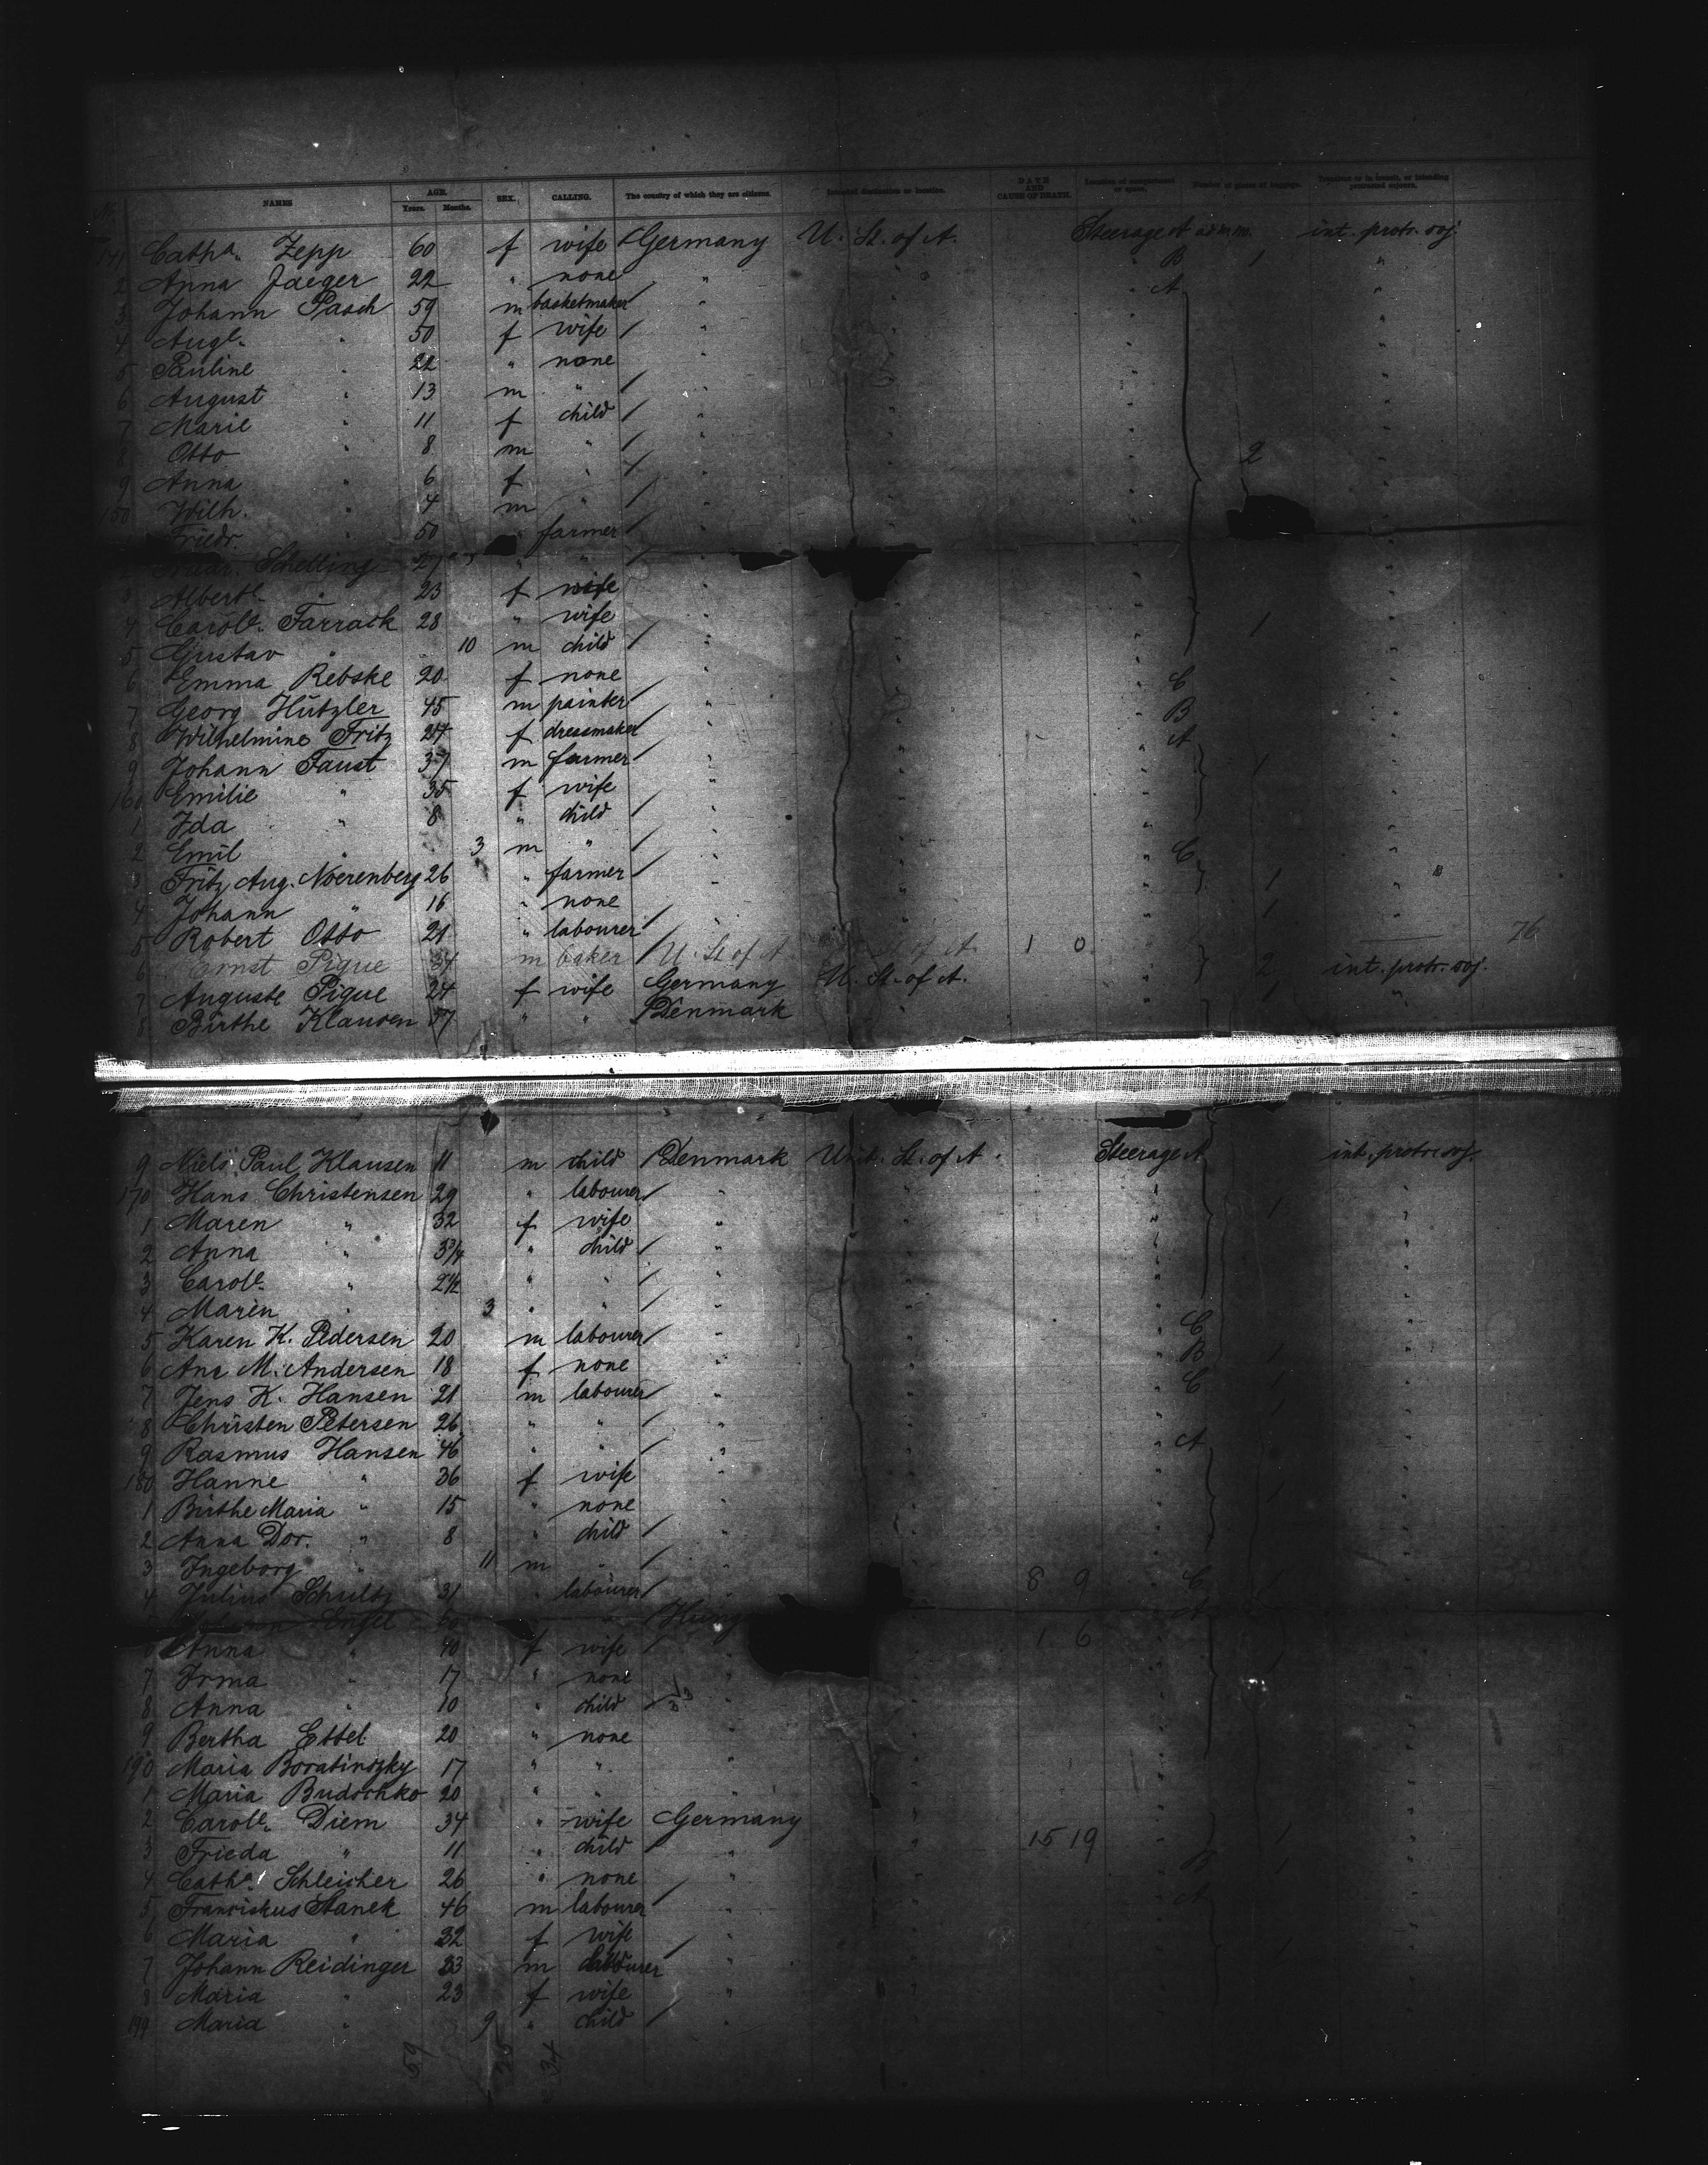 NAMES AGE. Years. Months. SEX. CALLING. The country of which they are citizens. Intended destination or location. DATE AND CAUSE OF DEATH. Location of compartment or space. Number of pieces of baggage. Transient or in transit, or intending protracted sojourn.
141 Catha. Zepp 60 f wife Germany U. St. of A. Steerage A int. protr. soj.
2 Anna Jaeger 22 " none " " " B 1 "
3 Johann Pasch 59 m basketmaker " " " A "
4 Auge. " 50 f wife " " " "
5 Pauline " 22 " none " " " "
6 August " 13 m " " " " "
7 Marie " 11 f child " " " "
8 Otto " 8 m " " " " 2 "
9 Anna " 6 f " " " " "
150 Wilh. " 4 m " " " " "
Friedr. " 50 " farmer " " "
Schelling 27 " " "
3 Alberte. " 23 f wife " " " "
4 Carole. Farrack 28 " wife " " " 1 "
5 Gustav " 10 m child " " " "
6 Emma Rebske 20 f none " " " C "
7 Georg Hützler 45 m painter " " " B "
8 Wilhelmine Fritz 24 f dressmaker " " " A "
9 Johann Faust 37 m farmer " " " 1 "
160 Emilie " 35 f wife " " " "
1 Ida " 8 " child " " " "
2 Emil " 3 m " " " " C "
3 Fritz Aug. Noerenberg 26 " farmer " " " 1 "
4 Johann " 16 " none " " " 1 "
5 Robert Otto 21 " labourer " " " 76
6 Ernst Pigue 34 m baker U. St. of A. of A. 1 0 2 int. protr. soj.
7 Auguste Pigue 24 f wife Germany U. St. of A. 1 "
8 Birthe Klausen 37 " " Denmark
9 Niels Paul Klausen 11 m child Denmark Unit. St. of A. Steerage A int. protr. soj.
170 Hans Christensen 29 " labourer " " " 1 "
1 Maren " 32 f wife " " " "
2 Anna " 3¾ " child " " " "
3 Carole. " 2½ " " " " " "
4 Maren " 3 " " " " " "
5 Karen K. Pedersen 20 m labourer " " " C "
6 Ane M. Andersen 18 f none " " " B 1 "
7 Jens K. Hansen 21 m labourer " " " C "
8 Christen Petersen 26 " " " " " "
9 Rasmus Hansen 46 " " " " " A "
180 Hanne " 36 f wife " " " "
1 Birthe Maria " 15 " none " " " 1 "
2 Anna Dor. " 8 " child " " " "
3 Ingeborg " 11 m " " " "
4 Julius Schultz 31 " labourer 8 9 C 1 "
Engel 60 " Hung A
6 Anna " 40 f wife 1 6 "
7 Irma " 17 " none " "
8 Anna " 10 " child " "
9 Bertha Ettel 20 " none " "
190 Maria Boratinszky 17 " " " "
1 Maria Budochko 20 " " " "
2 Carole. Diem 34 " wife Germany "
3 Frieda " 11 " child " 15 19 1 "
4 Catha. Schleicher 26 " none " B 1 "
5 Franciskus Stanek 46 m labourer " A "
6 Maria " 32 f wife " "
7 Johann Reidinger 23 m labourer " "
8 Maria " 23 f wife " "
199 Maria " 9 " child " "
59 25 34